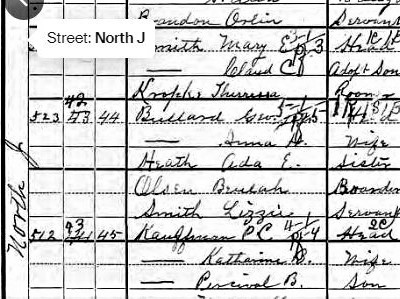 Brandon Orlin Servant
Street: North J
Smith Mary E Head
— Claud C Adopt Son
Kropke Theressa Roomer
523 42 43 44 Bullard Geo. Head
— Anna D. Wife
Heath Ada E. Sister
Olsen Beulah Boarder
Smith Lizzie Servant
North J
512 43 45 Kauffman P.C. Head
— Katharine B. Wife
— Percival B. Son